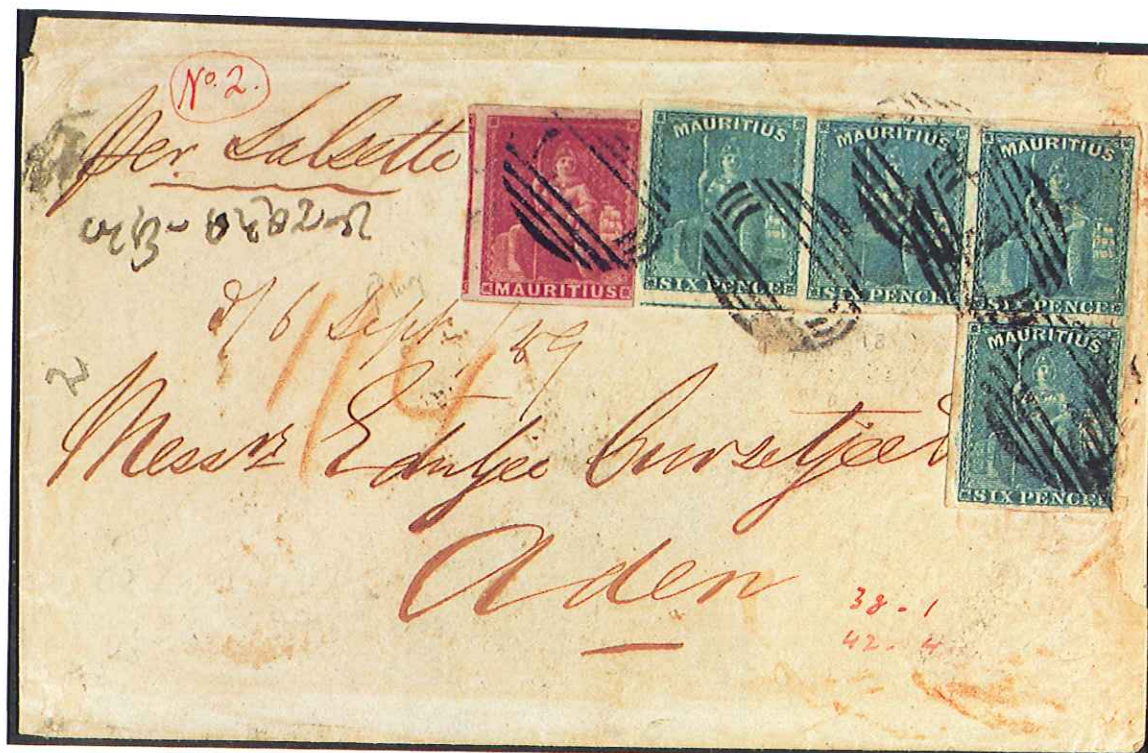 No. 2.
per Salsette
MAURITIUS
MAURITIUS
SIX PENCE
MAURITIUS
SIX PENCE
MAURITIUS
SIX PENCE
MAURITIUS
SIX PENCE
d/6 Sept. /59
Messrs Eduljee Cursetjee
Aden
38 - 1
42 - 4